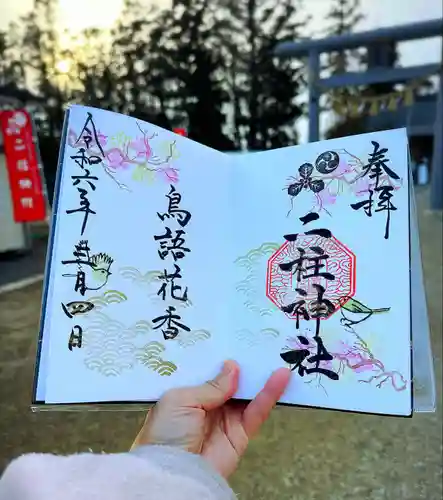 奉拝
二柱神社
鳥語花香
令和六年三月四日